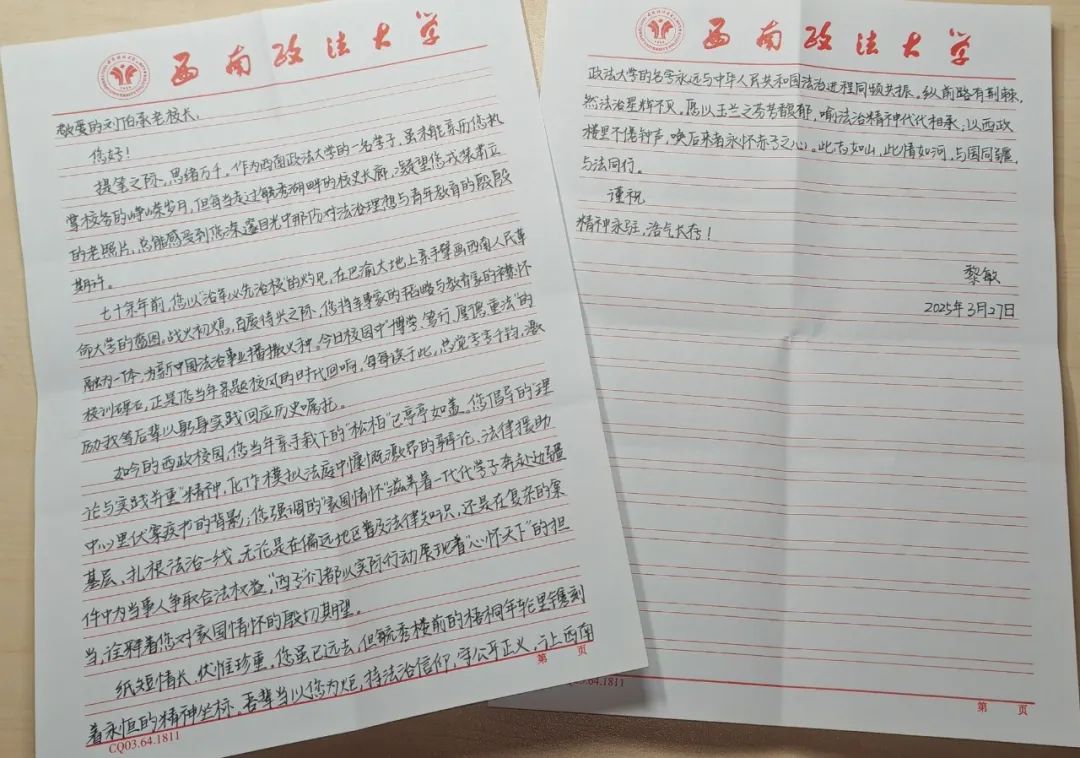 西南政法大学
敬爱的刘伯承老校长:
您好!
提笔之际,思绪万千,作为西南政法大学的一名学子,虽未能亲历您执
掌校务的峥嵘岁月,但每当走过毓秀湖畔的校史长廊,凝望您戎装肃立
的老照片,总能感受到您深邃目光中那份对法治理想与青年教育的殷殷
期许。
七十余年前,您以"治军必先治校"的灼见,在巴渝大地上亲手擘画西南人民革
命大学的蓝图。战火初熄,百废待兴之际,您将军事家的韬略与教育家的襟怀
融为一体,为新中国法治事业播撒火种。今日校园中"博学、笃行、厚德、重法"的
校训碑石,正是您当年亲题校风的时代回响,每每读于此,总觉字字千钧,激
励我等后辈以躬身实践回应历史嘱托。
如今的西政校园,您当年亲手栽下的"松柏"已亭亭如盖。您倡导的"理
论与实践并重"精神,化作模拟法庭中慷慨激昂的辩论、法律援助
中心里伏案疾书的背影;您强调的"家国情怀"滋养着一代代学子奔赴边疆
基层、扎根法治一线,无论是在偏远地区普及法律知识,还是在复杂的案
件中为当事人争取合法权益,"西子"们都以实际行动展现着"心怀天下"的担
当,诠释着您对家国情怀的殷切期望。
纸短情长,伏惟珍重。您虽已远去,但毓秀楼前的梧桐年轮里镌刻
着永恒的精神坐标。吾辈当以您为炬,持法治信仰,守公平正义,让西南
第 页
CQ03.64.1811
西南政法大学
政法大学的名字永远与中华人民共和国法治进程同频共振。纵前路有荆棘,
然法治星辉不灭。愿以玉兰之芬芳馥郁,喻法治精神代代相承;以西政
楼里不倦钟声,唤后来者永怀赤子之心。此志如山,此情如河,与国同疆,
与法同行。
谨祝
精神永驻,浩气长存!
黎敏
2025年3月27日
03.64.1811
第 页